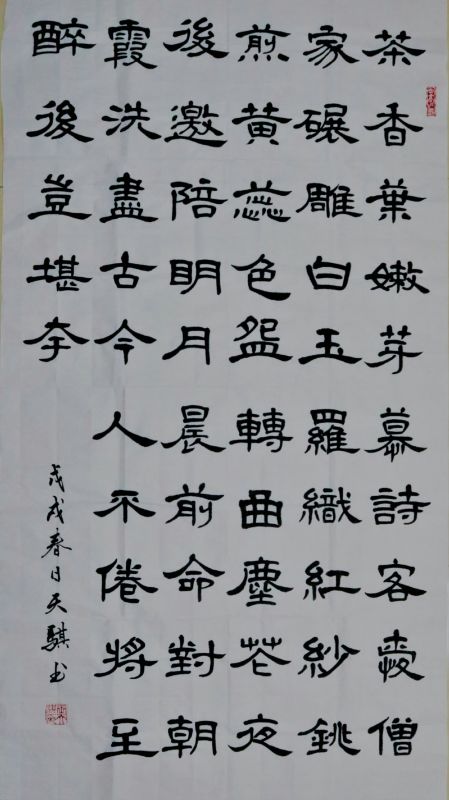 茶香葉嫩芽慕詩客愛僧
家碾雕白玉羅織紅紗銚
煎黃蕊色盌轉曲塵花夜
後邀陪明月晨前命對朝
霞洗盡古今人不倦將至
醉後豈堪夸
戊戌春日天騏书